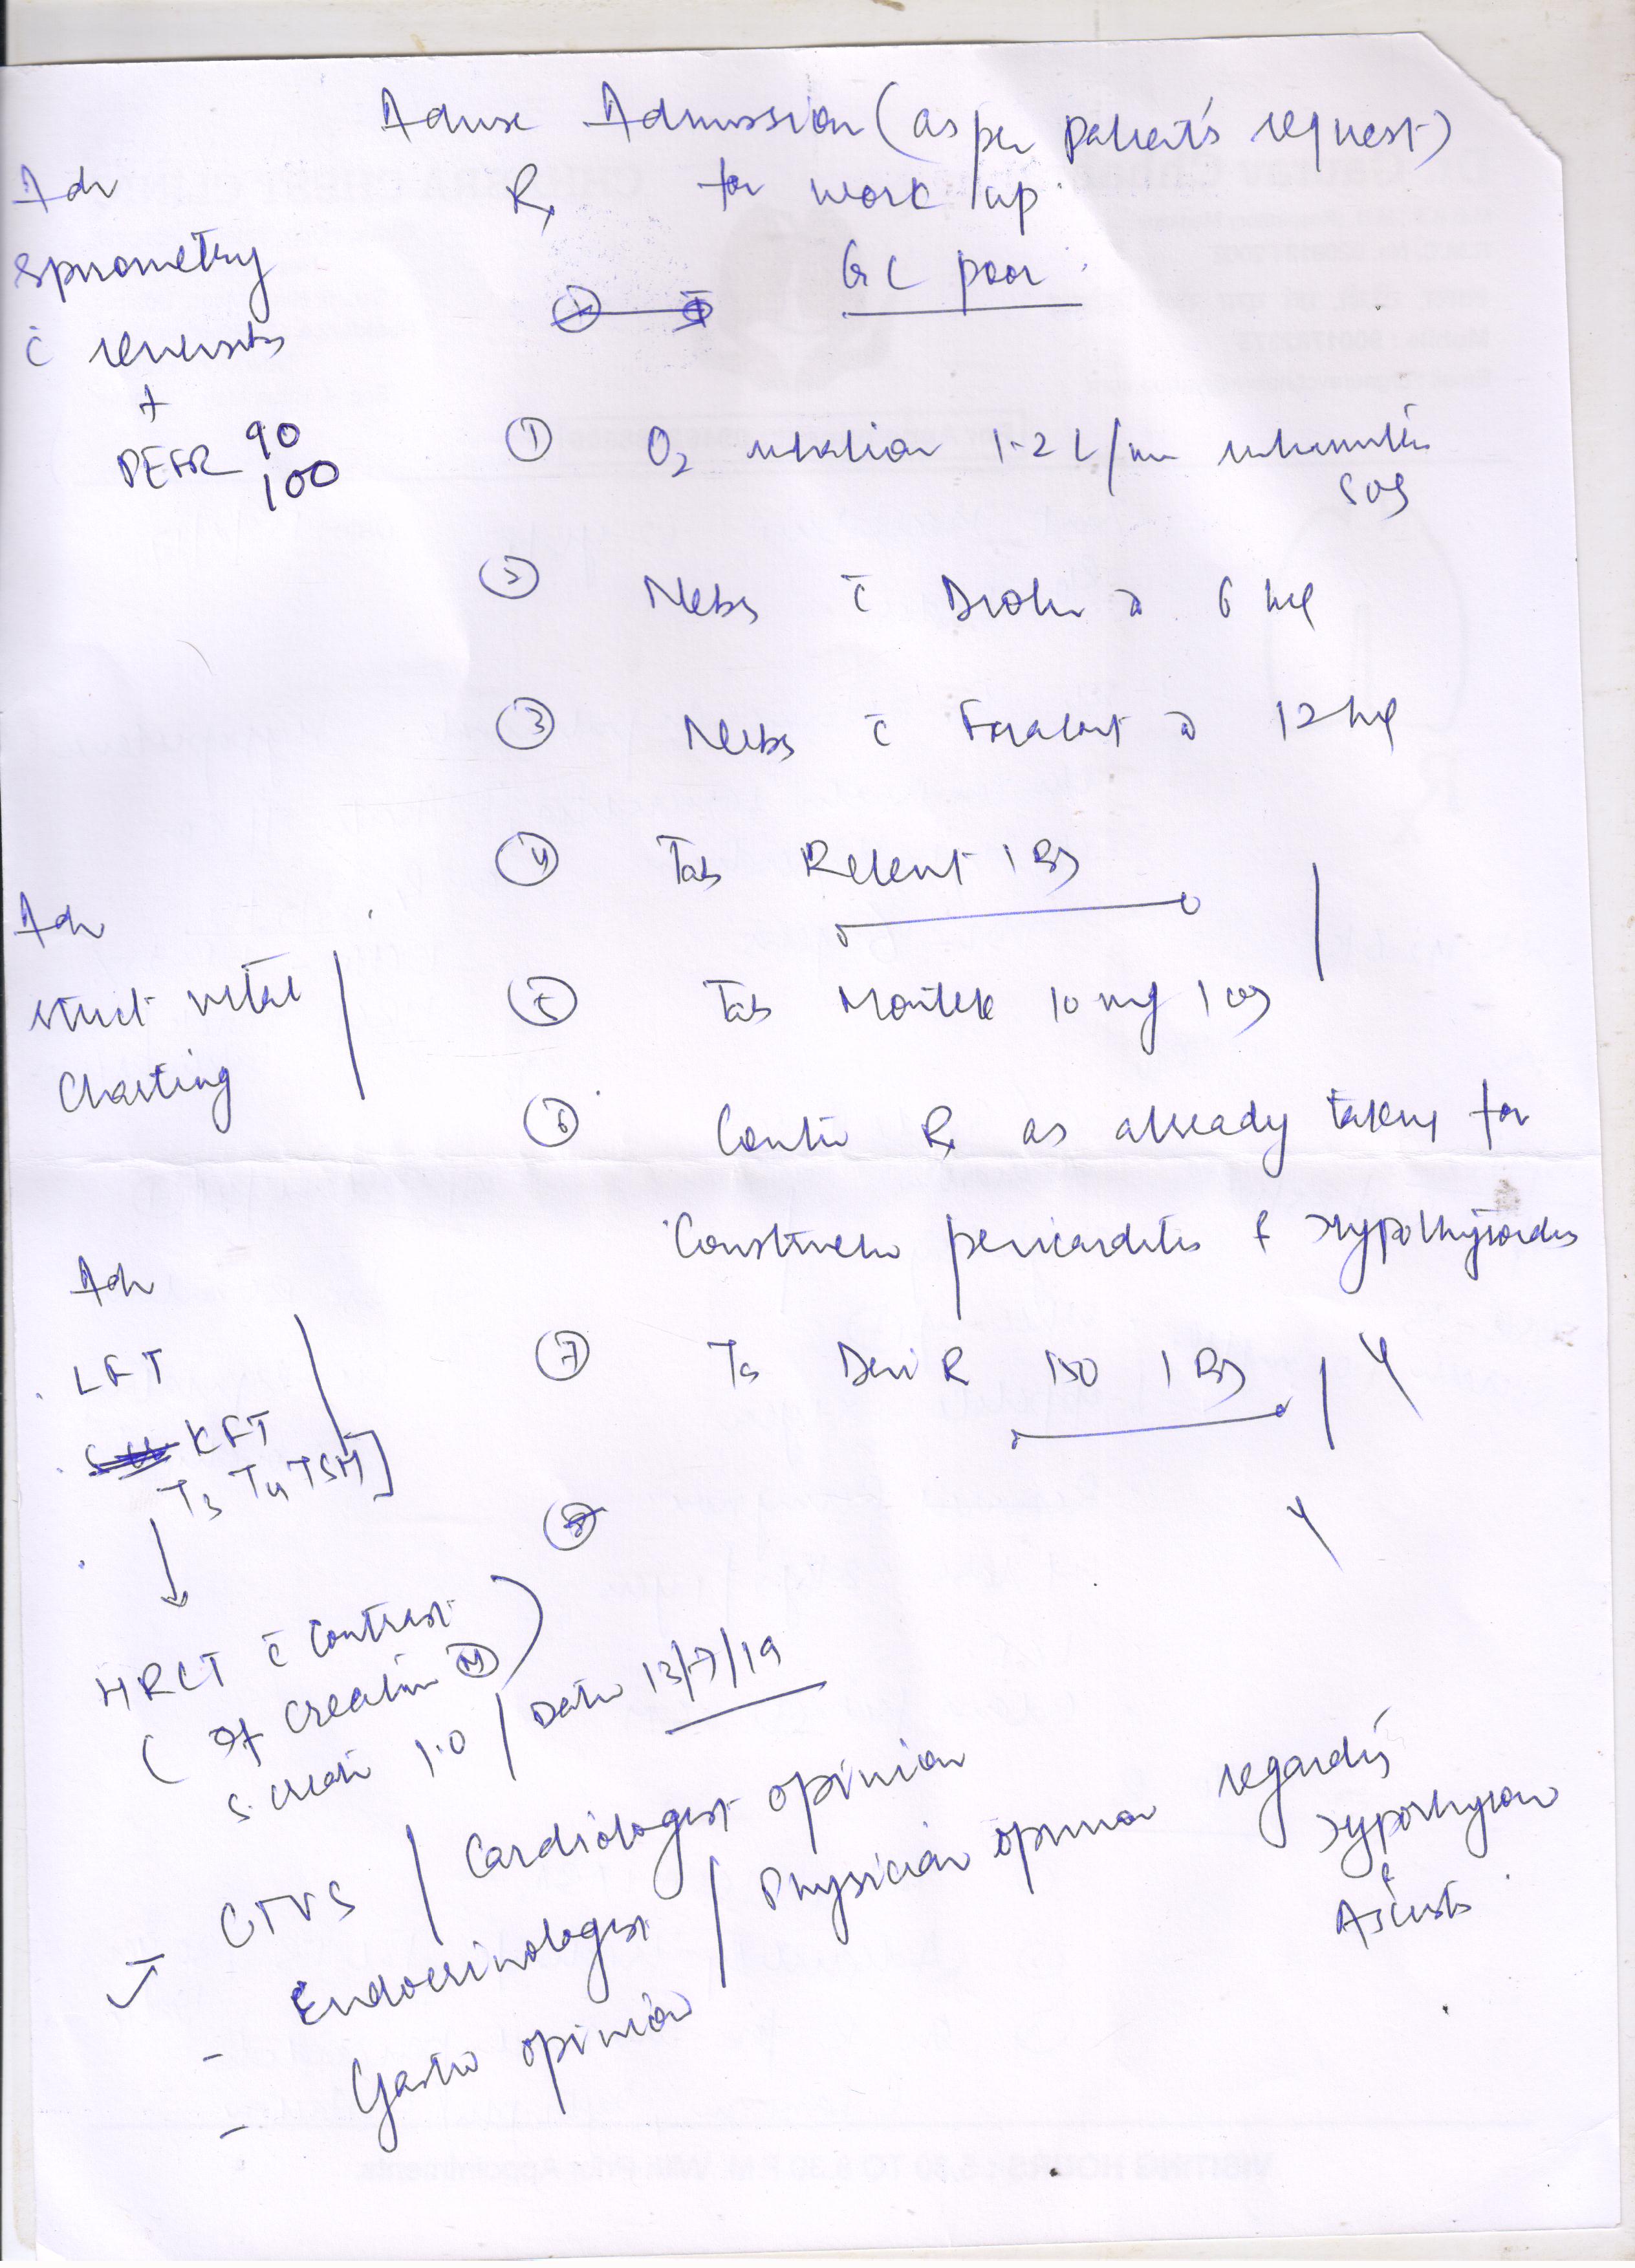 Advise Admission (as per patient's request)
Rx for work up.
GC poor
Adv
spirometry
c̄ reversib
+
PEFR 90
100
① O2 inhalation 1-2 L/min intermittn
SOS
② Nebs c̄ Duolin 6 hrly
③ Nebs c̄ Foracort 12 hrly
④ Tab Relent 1 BD
Adv
strict vital
charting
⑤ Tab Montek 10 mg 1 OD
⑥ Contin Rx as already taking for
Constrictiv pericarditis & Hypothyroidis
Adv
LFT
KFT
T3 T4 TSH]
⑦ Ta Deri R 150 1 BD
⑧
HRCT c̄ contrast
(If creatin Ⓝ)
S. creati 1.0 / Date 13/7/19
CTVS / Cardiologist opinion
- Endocrinologist / Physician opinion regardig
Hypothyroi
&
Ascists
- Gastro opinion